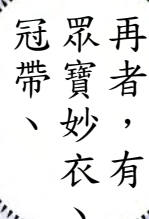 再者，有
眾寶妙衣、
冠帶、